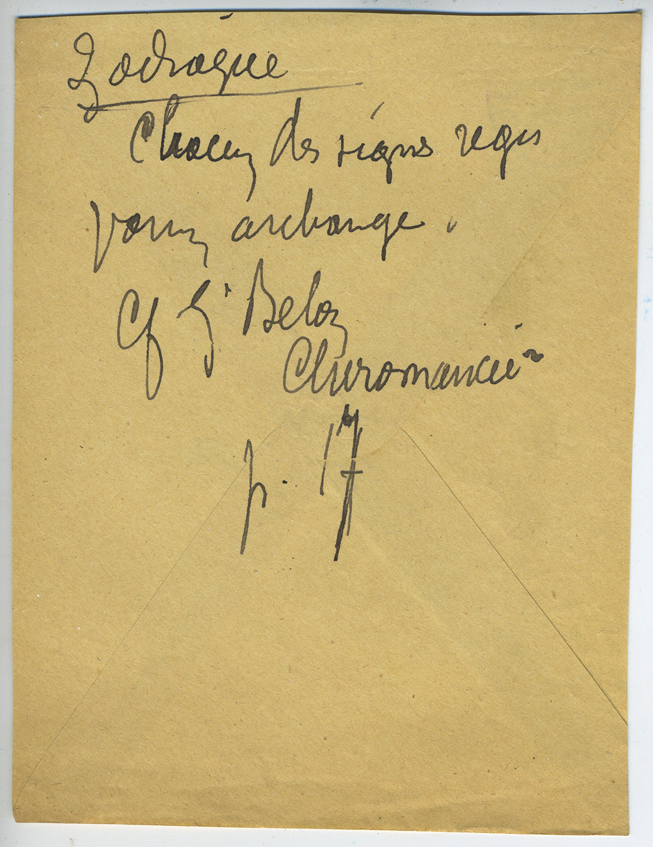 Zodiaque
Chacun des signes régis
par un archange.
Cf Gt Belot
Chiromancie
p. 17